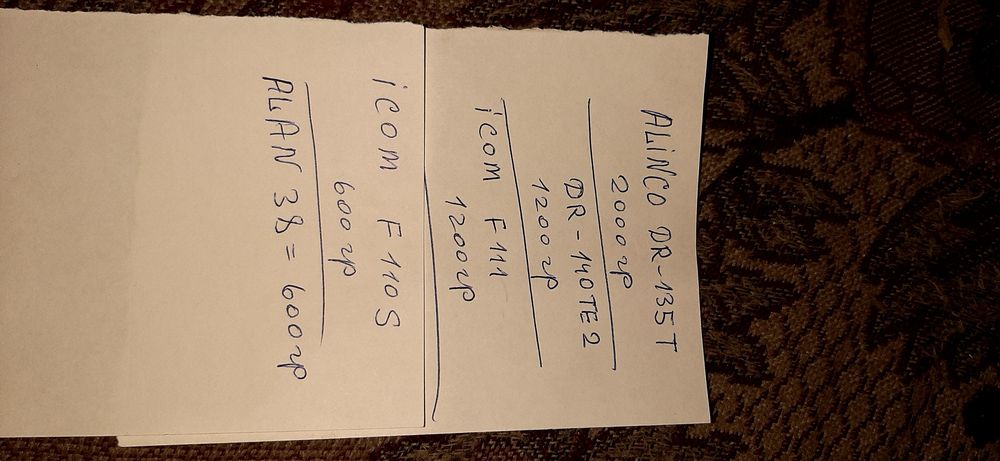 ALiNCO DR-135T
2000гр
DR-140TE2
1200гр
iCOM F111
1200гр
iCOM F110S
600гр
ALAN 38 = 600гр